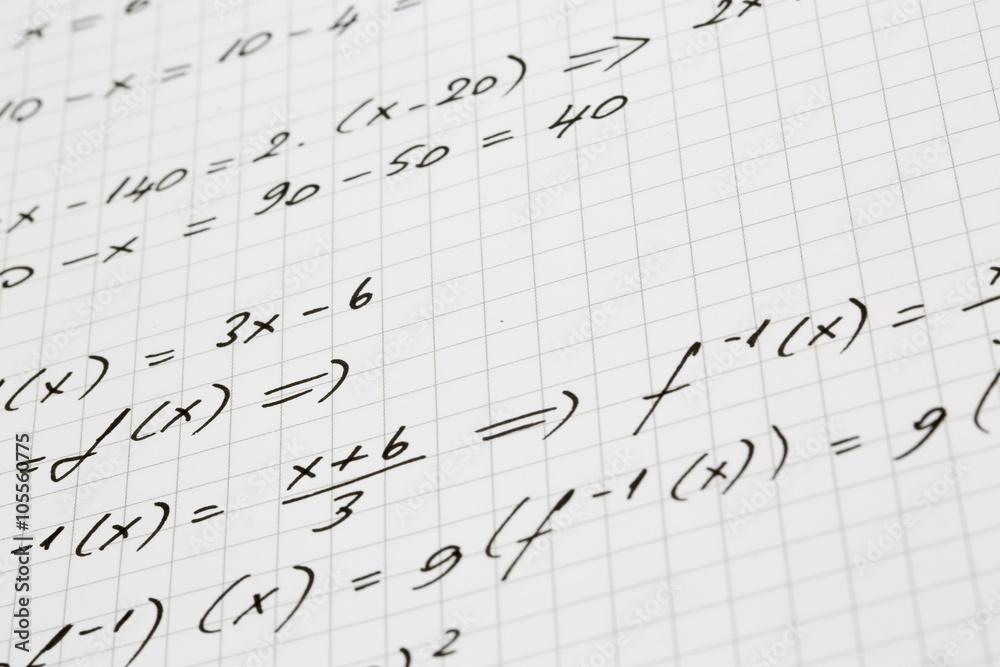 x = 6
10 - x = 10 - 4 =
x - 140 = 2. (x - 20) => 2x
0 - x = 90 - 50 = 40
(x) = 3x - 6
f(x) =>
-1(x) = x+6/3 => f-1(x) =
f-1) (x) = 9(f-1(x)) = 9(
)2
Adobe Stock | #105560775